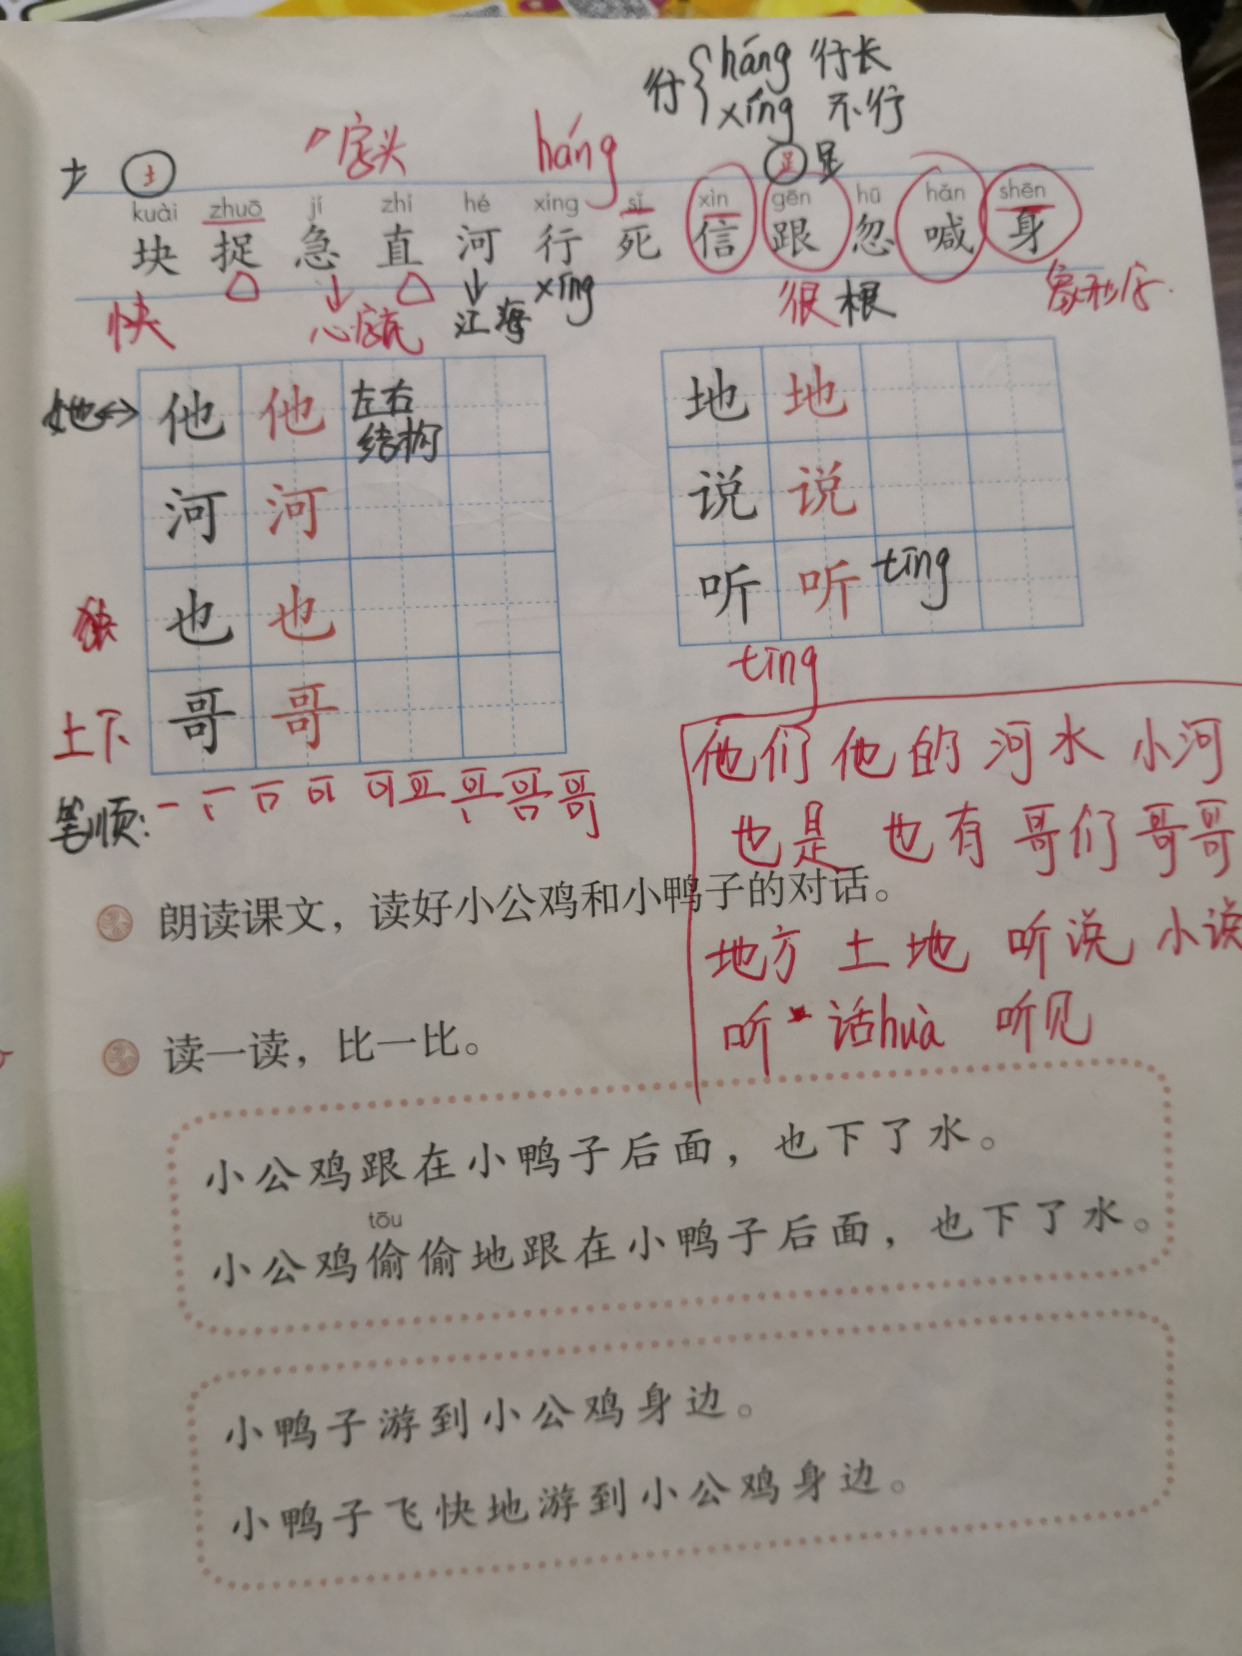 行 háng 行长
xíng 不行
⺈字头 háng
土 土 足 足
kuài zhuō jí zhí hé xíng sǐ xìn gēn hū hǎn shēn
块 捉 急 直 河 行 死 信 跟 忽 喊 身
xíng
快 心字底 江 海 很 根 象形字
她 他 他 左右结构
地 地
河 河
说 说
也 也
听 听 tīng
tīng
上下 哥 哥
笔顺:
他们 他的 河水 小河
也是 也有 哥们 哥哥
朗读课文，读好小公鸡和小鸭子的对话。
地方 土地 听说 小说
听话huà 听见
读一读，比一比。
小公鸡跟在小鸭子后面，也下了水。
tōu
小公鸡偷偷地跟在小鸭子后面，也下了水。
小鸭子游到小公鸡身边。
小鸭子飞快地游到小公鸡身边。